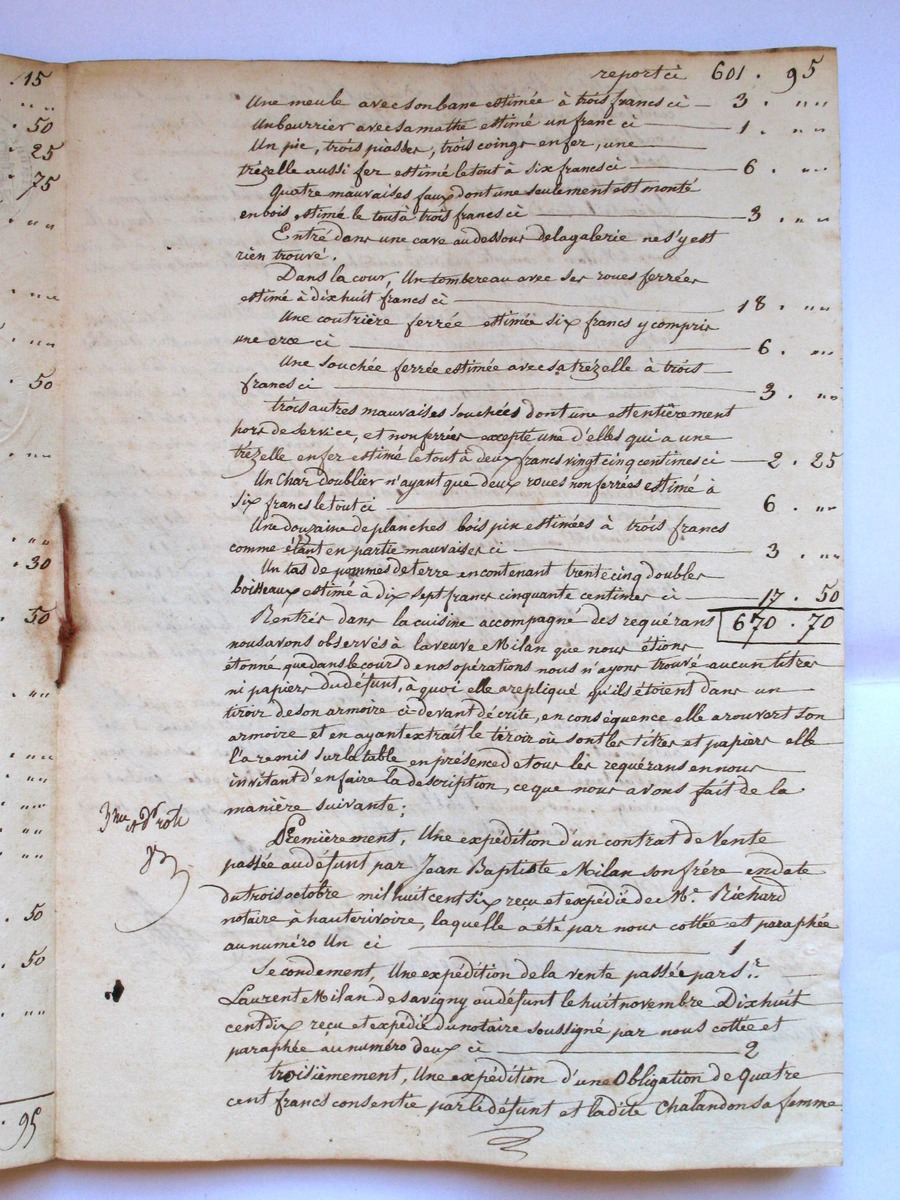 15
" "
50
25
75
" "
" "
" "
50
" "
" "
30
50
" "
" "
" "
" "
" "
50
50
" "
95
report ci 601 . 95
Une meule avec son banc estimée à trois francs ci — 3 . " "
Un beurrier avec sa mathe estimé un franc ci — 1 . " "
Un pic, trois piasses, trois coings en fer, une
trézelle aussi fer estimé le tout à six francs ci — 6 . " "
Quatre mauvaises faux dont une seulement est monté
en bois estimé le tout à trois francs ci — 3 . " "
Entré dans une cave au dessous de la galerie ne s'y est
rien trouvé.
Dans la cour, Un tombereau avec ses roues ferrées
estimé à dix huit francs ci — 18 . " "
Une coutrière ferrée estimée six francs y compris
une ci — 6 . " "
Une souchée ferrée estimée avec sa trézelle à trois
francs ci — 3 . " "
trois autres mauvaises souchées dont une est entièrement
hors de service, et non ferrées excepté une d'elles qui a une
trézelle en fer estimé le tout à deux francs vingt cinq centimes ci — 2 . 25
Un char doublier n'ayant que deux roues non ferrées estimé à
six francs le tout ci — 6 . " "
Une douzaine de planches bois pin estimées à trois francs
comme étant en partie mauvaises ci — 3 . " "
Un tas de pommes de terre en contenant trente cinq doubles
boisseaux estimé à dix sept francs cinquante centimes ci — 17 . 50
Rentrés dans la cuisine accompagné des requérans 670 . 70
nous avons observés à la veuve Milan que nous étions
étonné que dans le cours de nos opérations nous n'ayons trouvé aucun titres
ni papiers du défunt, à quoi elle a repliqué qu'ils étoient dans un
tiroir de son armoire ci-devant décrite, en conséquence elle a rouvert son
armoire et en ayant extrait le téroir où sont les titres et papiers elle
l'a remis sur la table en présence de tous les requérans en nous
invitant d'en faire la description, ce que nous avons fait de la
manière suivante;
3me et dr rôle
Premièrement, Une expédition d'un contrat de Vente
passée au défunt par Jean Baptiste Milan son frére en date
du trois octobre mil huit cent six reçu et expédié de Me. Richard
notaire à hauterivoire, laquelle a été par nous cottée et paraphée
au numéro Un ci — 1
Secondement, Une expédition de la vente passée par Sr.
Laurent Milan de savigny au défunt le huit novembre Dix huit
cent dix reçu et expédié du notaire soussigné par nous cottée et
paraphée au numéro deux ci — 2
troisièmement, Une expédition d'une Obligation de quatre
cent francs consentie par le défunt et la dite Chalandon sa femme